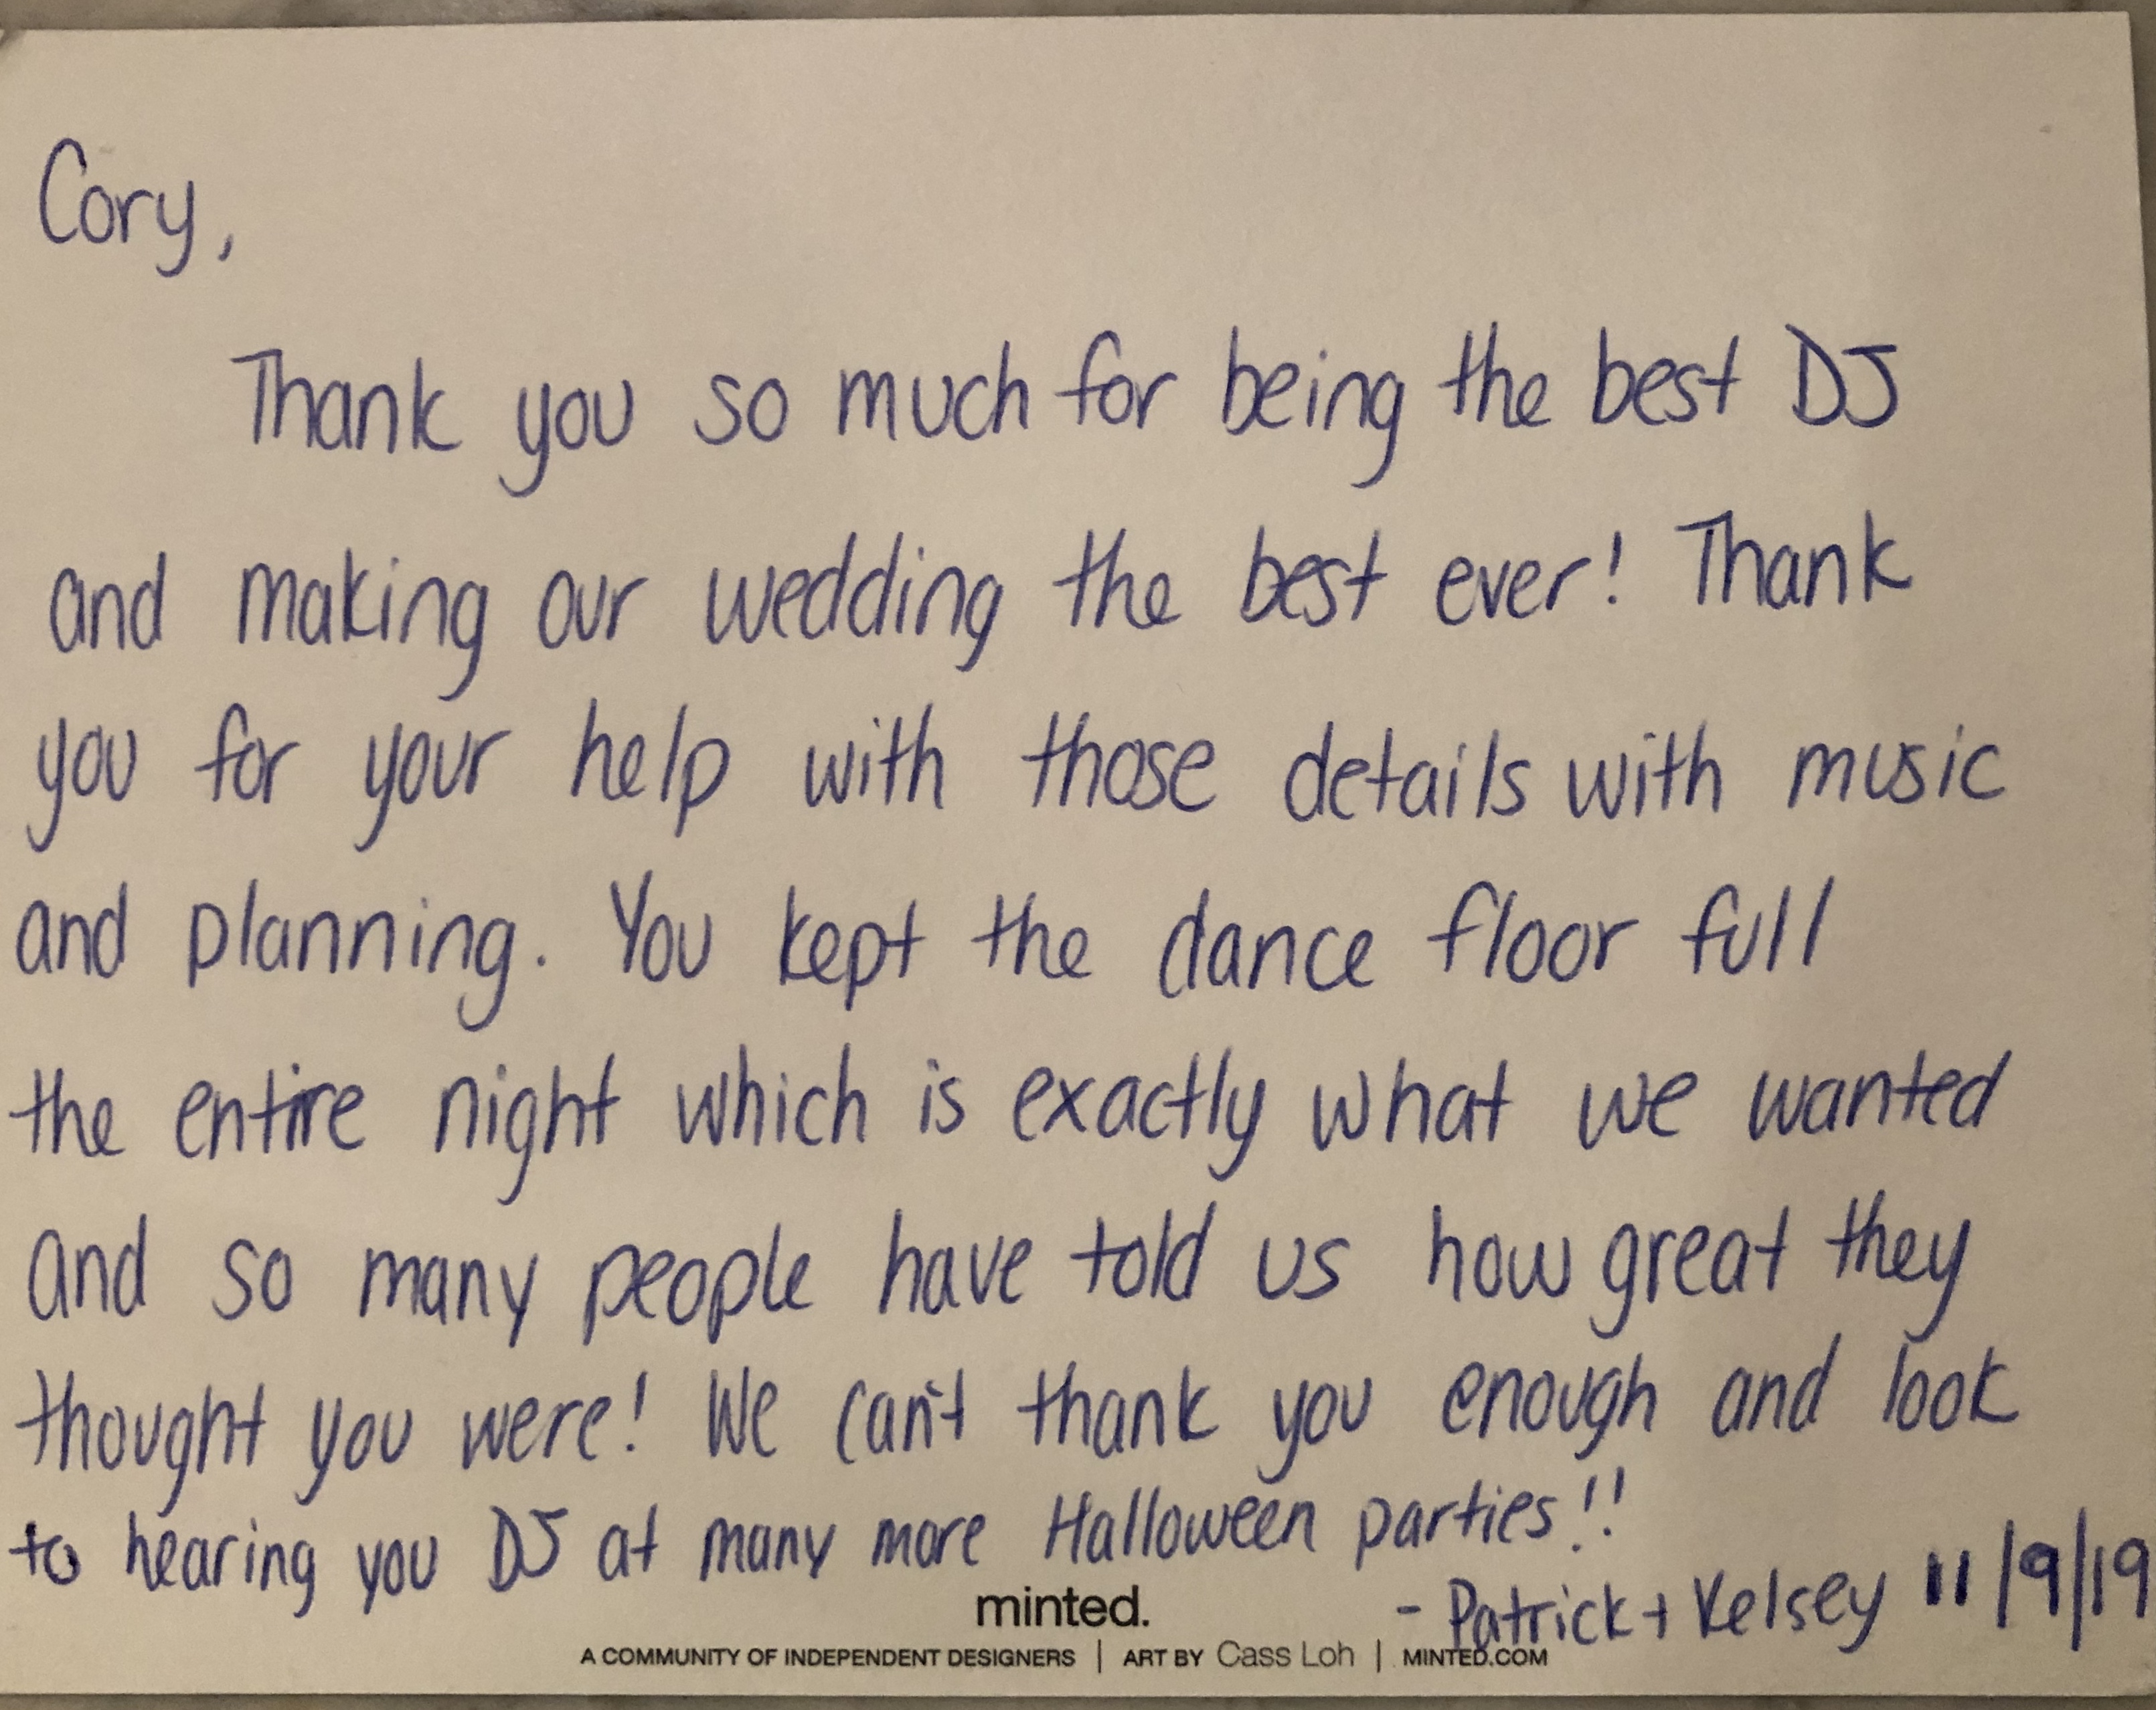 Cory,
Thank you so much for being the best DJ
and making our wedding the best ever! Thank
you for your help with those details with music
and planning. You kept the dance floor full
the entire night which is exactly what we wanted
and so many people have told us how great they
thought you were! We can't thank you enough and look
to hearing you DJ at many more Halloween parties!!
- Patrick + Kelsey 11/9/19
minted.
A COMMUNITY OF INDEPENDENT DESIGNERS | ART BY Cass Loh | MINTED.COM